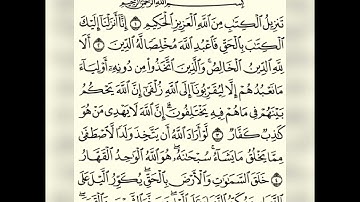 بِسْمِ اللَّهِ الرَّحْمَٰنِ الرَّحِيمِ
تَنزِيلُ الْكِتَٰبِ مِنَ اللَّهِ الْعَزِيزِ الْحَكِيمِ ۝١ إِنَّا أَنزَلْنَا إِلَيْكَ
الْكِتَٰبَ بِالْحَقِّ فَاعْبُدِ اللَّهَ مُخْلِصًا لَّهُ الدِّينَ ۝٢ أَلَا
لِلَّهِ الدِّينُ الْخَالِصُ وَالَّذِينَ اتَّخَذُوا مِن دُونِهِ أَوْلِيَاءَ
مَا نَعْبُدُهُمْ إِلَّا لِيُقَرِّبُونَا إِلَى اللَّهِ زُلْفَىٰ إِنَّ اللَّهَ يَحْكُمُ
بَيْنَهُمْ فِي مَا هُمْ فِيهِ يَخْتَلِفُونَ إِنَّ اللَّهَ لَا يَهْدِي مَنْ هُوَ
كَٰذِبٌ كَفَّارٌ ۝٣ لَّوْ أَرَادَ اللَّهُ أَن يَتَّخِذَ وَلَدًا لَّاصْطَفَىٰ
مِمَّا يَخْلُقُ مَا يَشَاءُ سُبْحَٰنَهُ هُوَ اللَّهُ الْوَٰحِدُ الْقَهَّارُ
۝٤ خَلَقَ السَّمَٰوَٰتِ وَالْأَرْضَ بِالْحَقِّ يُكَوِّرُ اللَّيْلَ عَلَى